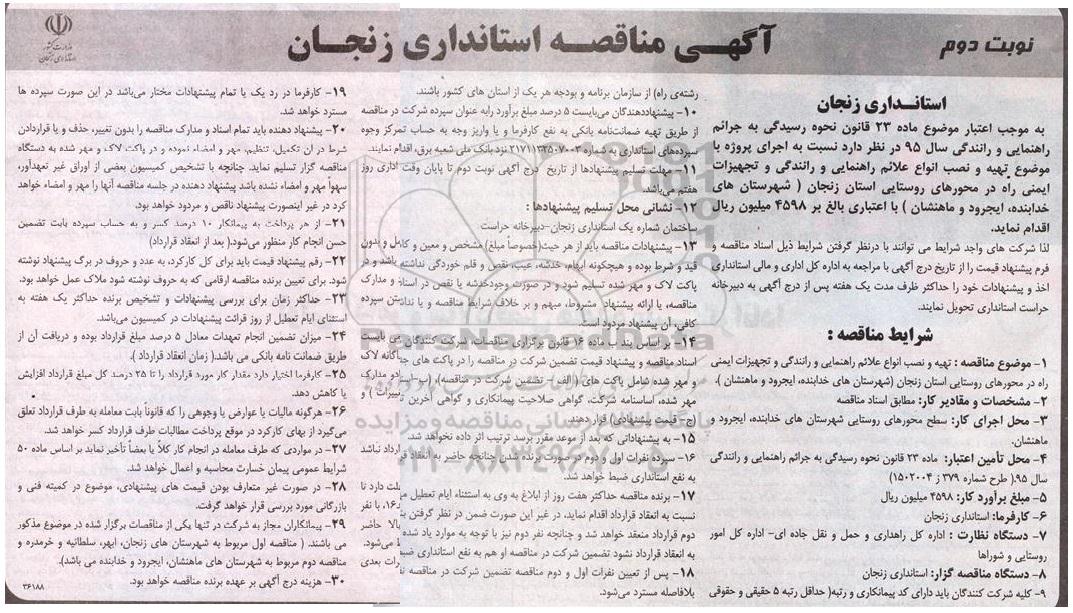 آگهی مناقصه استانداری زنجان
نوبت دوم
وزارت کشور
استانداری زنجان
استانداری زنجان
به موجب اعتبار موضوع ماده ۲۳ قانون نحوه رسیدگی به جرائم
راهنمایی و رانندگی سال ۹۵ در نظر دارد نسبت به اجرای پروژه با
موضوع تهیه و نصب انواع علائم راهنمایی و رانندگی و تجهیزات
ایمنی راه در محورهای روستایی استان زنجان ( شهرستان های
خدابنده، ایجرود و ماهنشان ) با اعتباری بالغ بر ۴۵۹۸ میلیون ریال
اقدام نماید.
لذا شرکت های واجد شرایط می توانند با درنظر گرفتن شرایط ذیل اسناد مناقصه و
فرم پیشنهاد قیمت را از تاریخ درج آگهی با مراجعه به اداره کل اداری و مالی استانداری
اخذ و پیشنهادات خود را حداکثر ظرف مدت یک هفته پس از درج آگهی به دبیرخانه
حراست استانداری تحویل نمایند.
شرایط مناقصه :
۱- موضوع مناقصه : تهیه و نصب انواع علائم راهنمایی و رانندگی و تجهیزات ایمنی
راه در محورهای روستایی استان زنجان (شهرستان های خدابنده، ایجرود و ماهنشان ).
۲- مشخصات و مقادیر کار: مطابق اسناد مناقصه
۳- محل اجرای کار: سطح محورهای روستایی شهرستان های خدابنده، ایجرود و
ماهنشان.
۴- محل تأمین اعتبار: ماده ۲۳ قانون نحوه رسیدگی به جرائم راهنمایی و رانندگی
سال ۹۵.( طرح شماره ۳۷۹ ز ۱۵۰۲۰۰۴)
۵- مبلغ برآورد کار: ۴۵۹۸ میلیون ریال
۶- کارفرما: استانداری زنجان
۷- دستگاه نظارت : اداره کل راهداری و حمل و نقل جاده ای- اداره کل امور
روستایی و شوراها
۸- دستگاه مناقصه گزار: استانداری زنجان
۹- کلیه شرکت کنندگان باید دارای کد پیمانکاری و رتبه( حداقل رتبه ۵ حقیقی و حقوقی
رشته‌ی راه) از سازمان برنامه و بودجه هر یک از استان های کشور باشند.
۱۰- پیشنهاددهندگان می‌بایست ۵ درصد مبلغ برآورد رابه عنوان سپرده شرکت در مناقصه
از طریق تهیه ضمانت‌نامه بانکی به نفع کارفرما و یا واریز وجه به حساب تمرکز وجوه
سپرده‌های استانداری به شماره ۲۱۷۱۱۳۳۵۰۷۰۰۳ نزد بانک ملی شعبه برق، اقدام نمایند.
۱۱- مهلت تسلیم پیشنهادها از تاریخ درج آگهی نوبت دوم تا پایان وقت اداری روز
هفتم می‌باشد.
۱۲- نشانی محل تسلیم پیشنهادها :
ساختمان شماره یک استانداری زنجان-دبیرخانه حراست
۱۳- پیشنهادات مناقصه باید از هر حیث(خصوصاً مبلغ) مشخص و معین و کامل و بدون
قید و شرط بوده و هیچگونه ابهام، خدشه، عیب، نقص و قلم خوردگی نداشته باشد و در
پاکت لاک و مهر شده تسلیم شود و در صورت وجودخدشه یا نقص در اسناد و مدارک
مناقصه، یا ارائه پیشنهاد مشروط، مبهم و بر خلاف شرایط مناقصه و یا نداشتن سپرده
کافی، آن پیشنهاد مردود است.
۱۴- بر اساس بند ب ماده ۱۶ قانون برگزاری مناقصات، شرکت کنندگان می بایست
اسناد مناقصه و پیشنهاد قیمت تضمین شرکت در مناقصه را در پاکت های جداگانه لاک
و مهر شده شامل پاکت های ( الف - تضمین شرکت در مناقصه)، ( ب - اسناد و مدارک
مهر شده، اساسنامه شرکت، گواهی صلاحیت پیمانکاری و گواهی آخرین تغییرات ) و
(ج - قیمت پیشنهادی) قرار دهند.
۱۵- به پیشنهاداتی که بعد از موعد مقرر برسد ترتیب اثر داده نخواهد شد.
۱۶- سپرده نفرات اول و دوم در صورت برنده شدن چنانچه حاضر به انعقاد قرارداد نباشد
به نفع استانداری ضبط خواهد شد.
۱۷- برنده مناقصه حداکثر هفت روز از ابلاغ به وی به استثناء ایام تعطیل مهلت دارد تا
نسبت به انعقاد قرارداد اقدام نماید، در غیر این صورت ضمن در نظر گرفتن ۱۶، با نفر
دوم قرارداد منعقد خواهد شد و چنانچه نفر دوم نیز با توجه به موارد یاد شده بالا حاضر
به انعقاد قرارداد نشود تضمین شرکت در مناقصه او هم به نفع استانداری ضبط می‌شود.
۱۸- پس از تعیین نفرات اول و دوم مناقصه تضمین شرکت در مناقصه نفرات بعدی
بلافاصله مسترد می‌شود.
۱۹- کارفرما در رد یک یا تمام پیشنهادات مختار می‌باشد در این صورت سپرده ها
مسترد خواهد شد.
۲۰- پیشنهاد دهنده باید تمام اسناد و مدارک مناقصه را بدون تغییر، حذف و یا قراردادن
شرط در آن تکمیل، تنظیم، مهر و امضاء نموده و در پاکت لاک و مهر شده به دستگاه
مناقصه گزار تسلیم نماید. چنانچه با تشخیص کمیسیون بعضی از اوراق غیر تعهدآور،
سهواً مهر و امضاء نشده باشد پیشنهاد دهنده در جلسه مناقصه آنها را مهر و امضاء خواهد
کرد در غیر اینصورت پیشنهاد ناقص و مردود خواهد بود.
۲۱- از هر پرداخت به پیمانکار ۱۰ درصد کسر و به حساب سپرده بابت تضمین
حسن انجام کار منظور می‌شود.( بعد از انعقاد قرارداد)
۲۲- رقم پیشنهاد قیمت باید برای کل کارکرد، به عدد و حروف در برگ پیشنهاد نوشته
شود. برای تعیین برنده مناقصه ارقامی که به حروف نوشته شود ملاک عمل خواهد بود.
۲۳- حداکثر زمان برای بررسی پیشنهادات و تشخیص برنده حداکثر یک هفته به
استثنای ایام تعطیل از روز قرائت پیشنهادات در کمیسیون می‌باشد.
۲۴- میزان تضمین انجام تعهدات معادل ۵ درصد مبلغ قرارداد بوده و دریافت آن از
طریق ضمانت نامه بانکی می باشد.( زمان انعقاد قرارداد ).
۲۵- کارفرما اختیار دارد مقدار کار مورد قرارداد را تا ۲۵ درصد کل مبلغ قرارداد افزایش
یا کاهش دهد.
۲۶- هرگونه مالیات یا عوارض یا وجوهی را که قانوناً بابت معامله به طرف قرارداد تعلق
می‌گیرد از بهای کارکرد در موقع پرداخت مطالبات طرف قرارداد کسر خواهد شد.
۲۷- در مواردی که طرف معامله در انجام کار کلاً یا بعضاً تأخیر نماید بر اساس ماده ۵۰
شرایط عمومی پیمان خسارت محاسبه و اعمال خواهد شد.
۲۸- در صورت غیر متعارف بودن قیمت های پیشنهادی، موضوع در کمیته فنی و
بازرگانی مورد بررسی قرار خواهد گرفت.
۲۹- پیمانکاران مجاز به شرکت در تنها یکی از مناقصات برگزار شده در موضوع مذکور
می باشند. ( مناقصه اول مربوط به شهرستان های زنجان، ابهر، سلطانیه و خرمدره و
مناقصه دوم مربوط به شهرستان های ماهنشان، ایجرود و خدابنده می باشد).
۳۰- هزینه درج آگهی بر عهده برنده مناقصه خواهد بود.
۳۶۱۸۸
ParsNamadData
پایگاه اطلاع رسانی مناقصه و مزایده